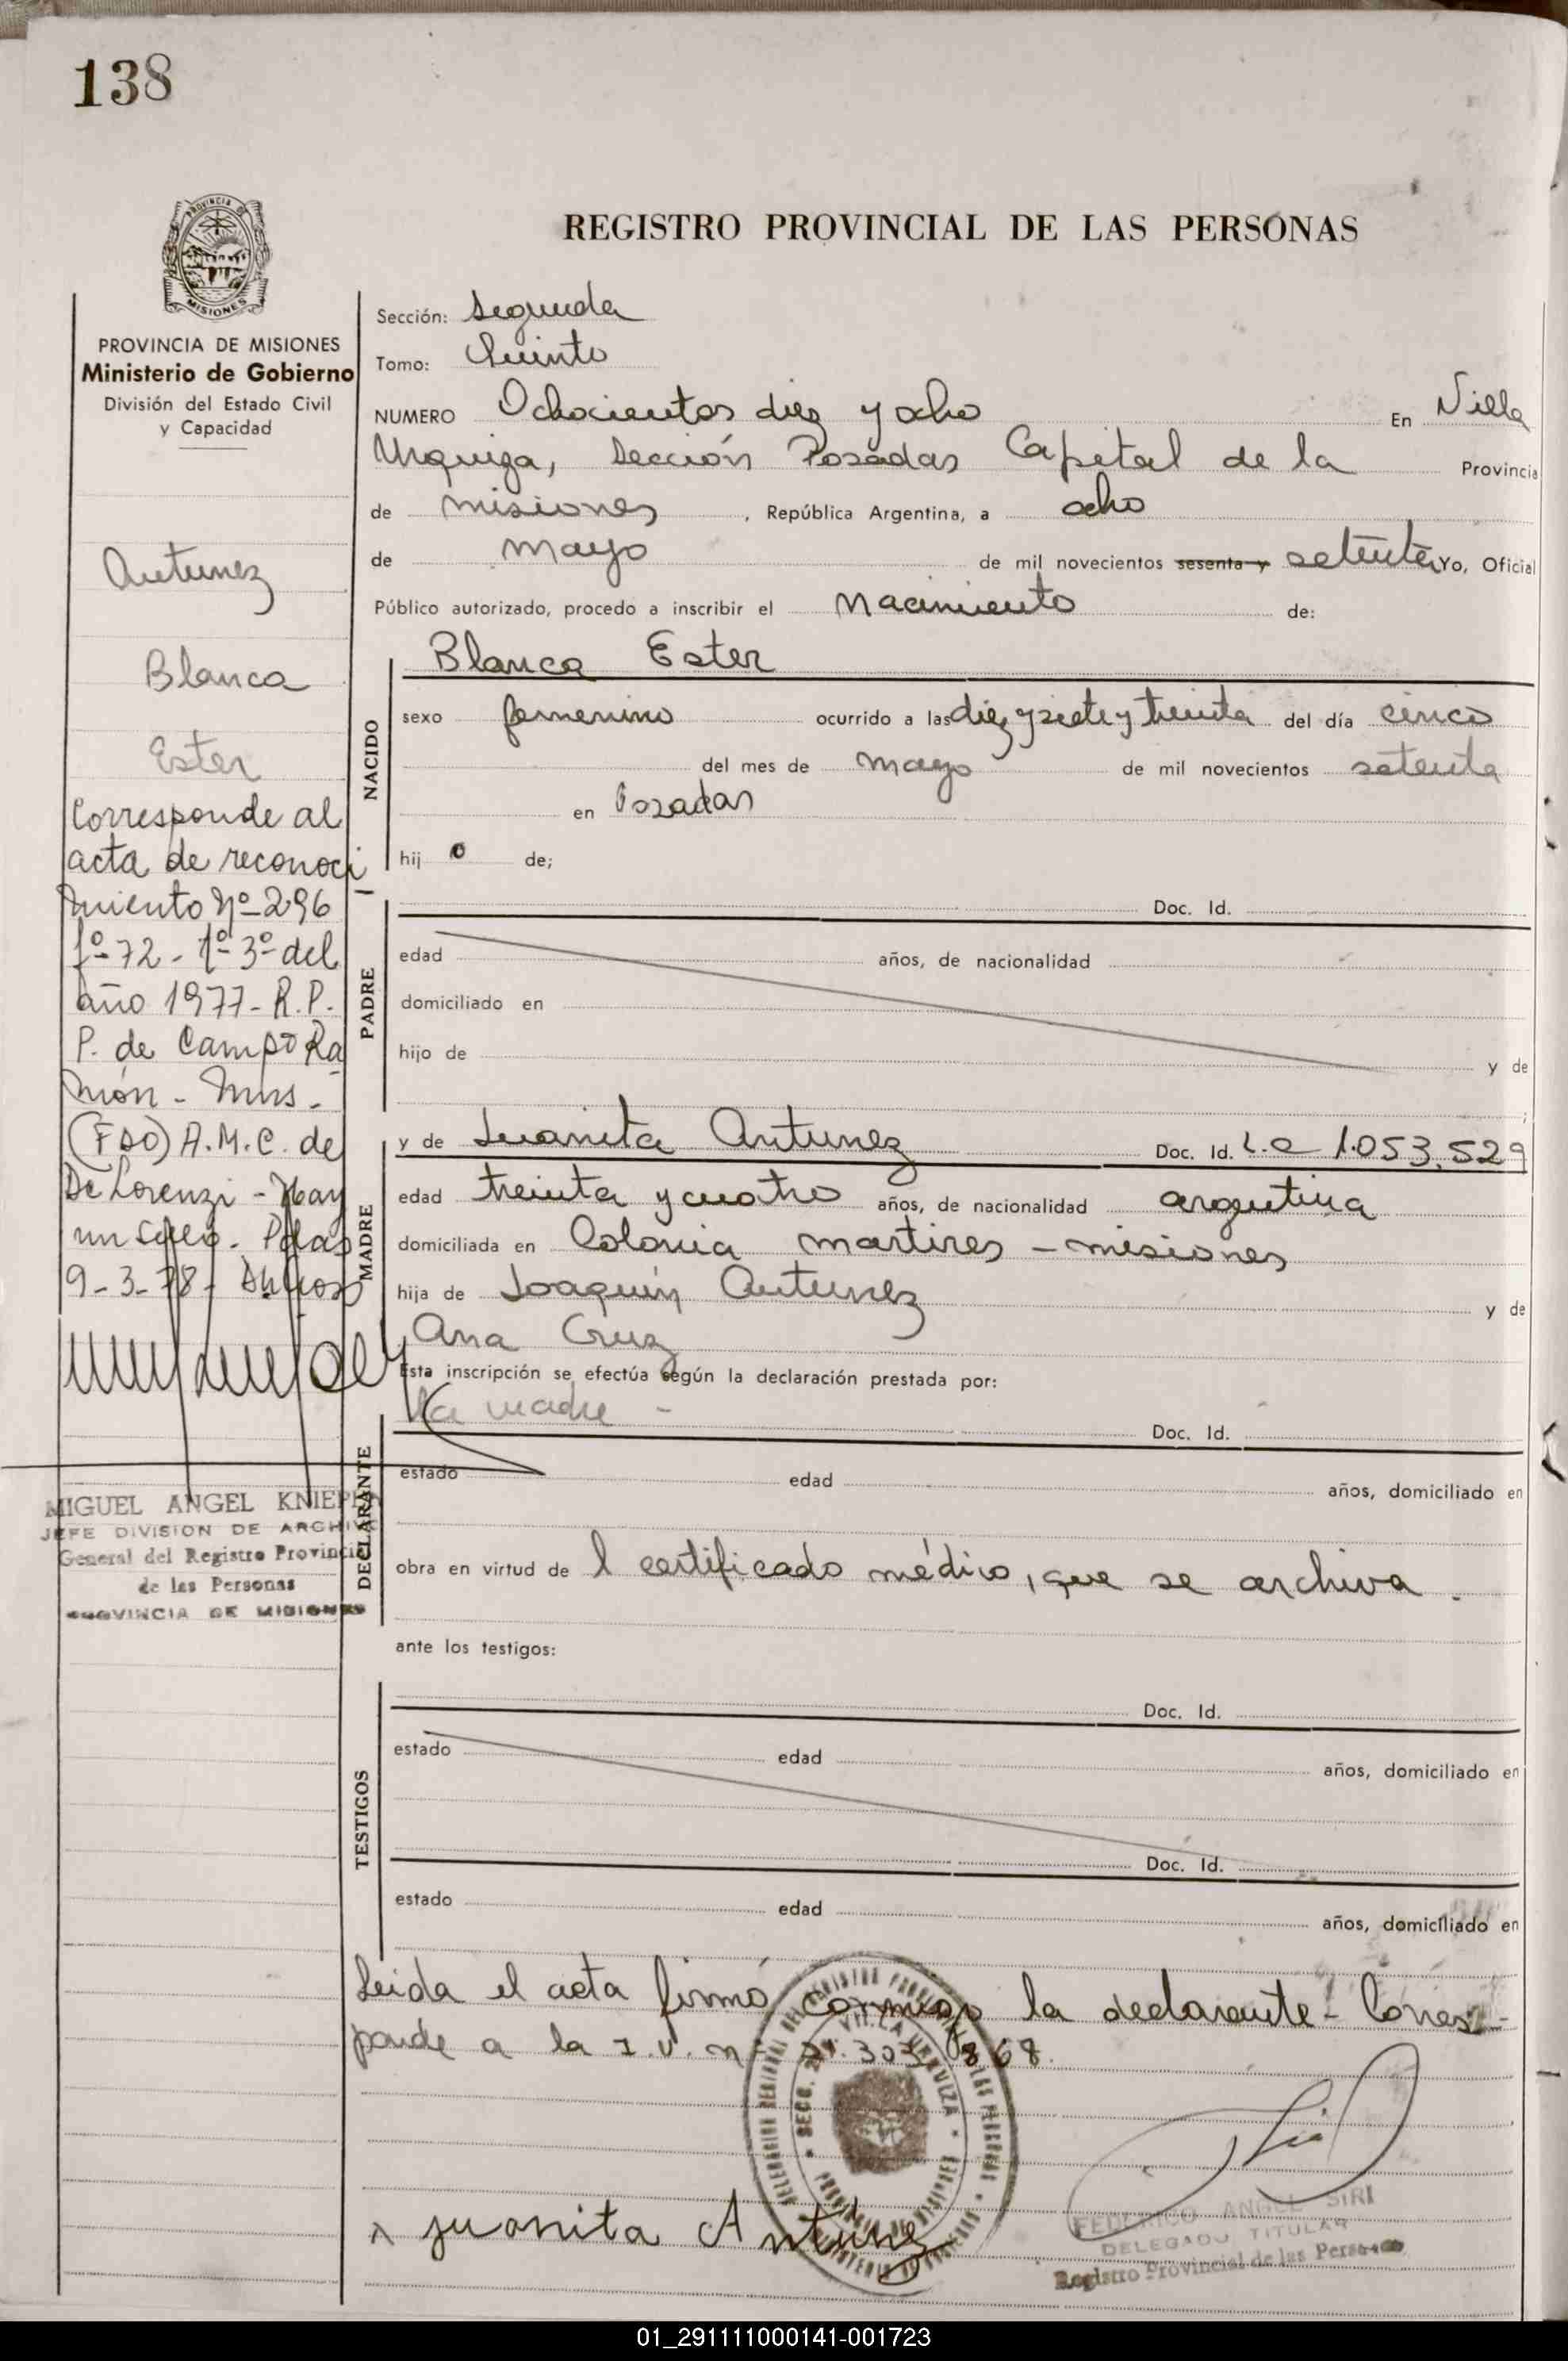 138
REGISTRO PROVINCIAL DE LAS PERSONAS
PROVINCIA DE MISIONES
Ministerio de Gobierno
División del Estado Civil
y Capacidad
Antunez
Blanca
Ester
Corresponde al
acta de reconoci
miento Nº 296
fº 72 - tº 3º del
año 1977 - R.P.
P. de Campo Ra
món - Mns -
(FDO) A.M.C. de
De Lorenzi - Hay
un sello - Pdas
9-3-78-
MIGUEL ANGEL
JEFE DIVISION DE ARCHIVO
General del Registro Provincial
de las Personas
PROVINCIA DE MISIONES
Sección: Segunda
Tomo: Quinto
NUMERO Ochocientos diez y ocho En Villa
Urquiza, Sección Posadas Capital de la Provincia
de misiones, República Argentina, a ocho
de mayo de mil novecientos sesenta y setenta Yo, Oficial
Público autorizado, procedo a inscribir el Nacimiento de:
NACIDO
Blanca Ester
sexo femenino ocurrido a las diez y siete y treinta del día cinco
del mes de mayo de mil novecientos setenta
en Posadas
hij de;
PADRE
Doc. Id.
edad años, de nacionalidad
domiciliado en
hijo de y de
;
MADRE
y de Juanita Antunez Doc. Id. L.C 1.053.529
edad treinta y cuatro años, de nacionalidad argentina
domiciliada en Colonia martires - misiones
hija de Joaquin Antunez y de
Ana Cruz
Esta inscripción se efectúa según la declaración prestada por:
DECLARANTE
La madre -
Doc. Id.
estado edad años, domiciliado en
obra en virtud de l certificado médico, que se archiva.
ante los testigos:
TESTIGOS
Doc. Id.
estado edad años, domiciliado en
Doc. Id.
estado edad años, domiciliado en
Leida el acta firmó conmigo la declarante - Corres-
ponde a la I.U. nº
Juanita Antunez
FEDERICO ANGEL SIRI
DELEGADO TITULAR
Registro Provincial de las Personas
01_291111000141-001723